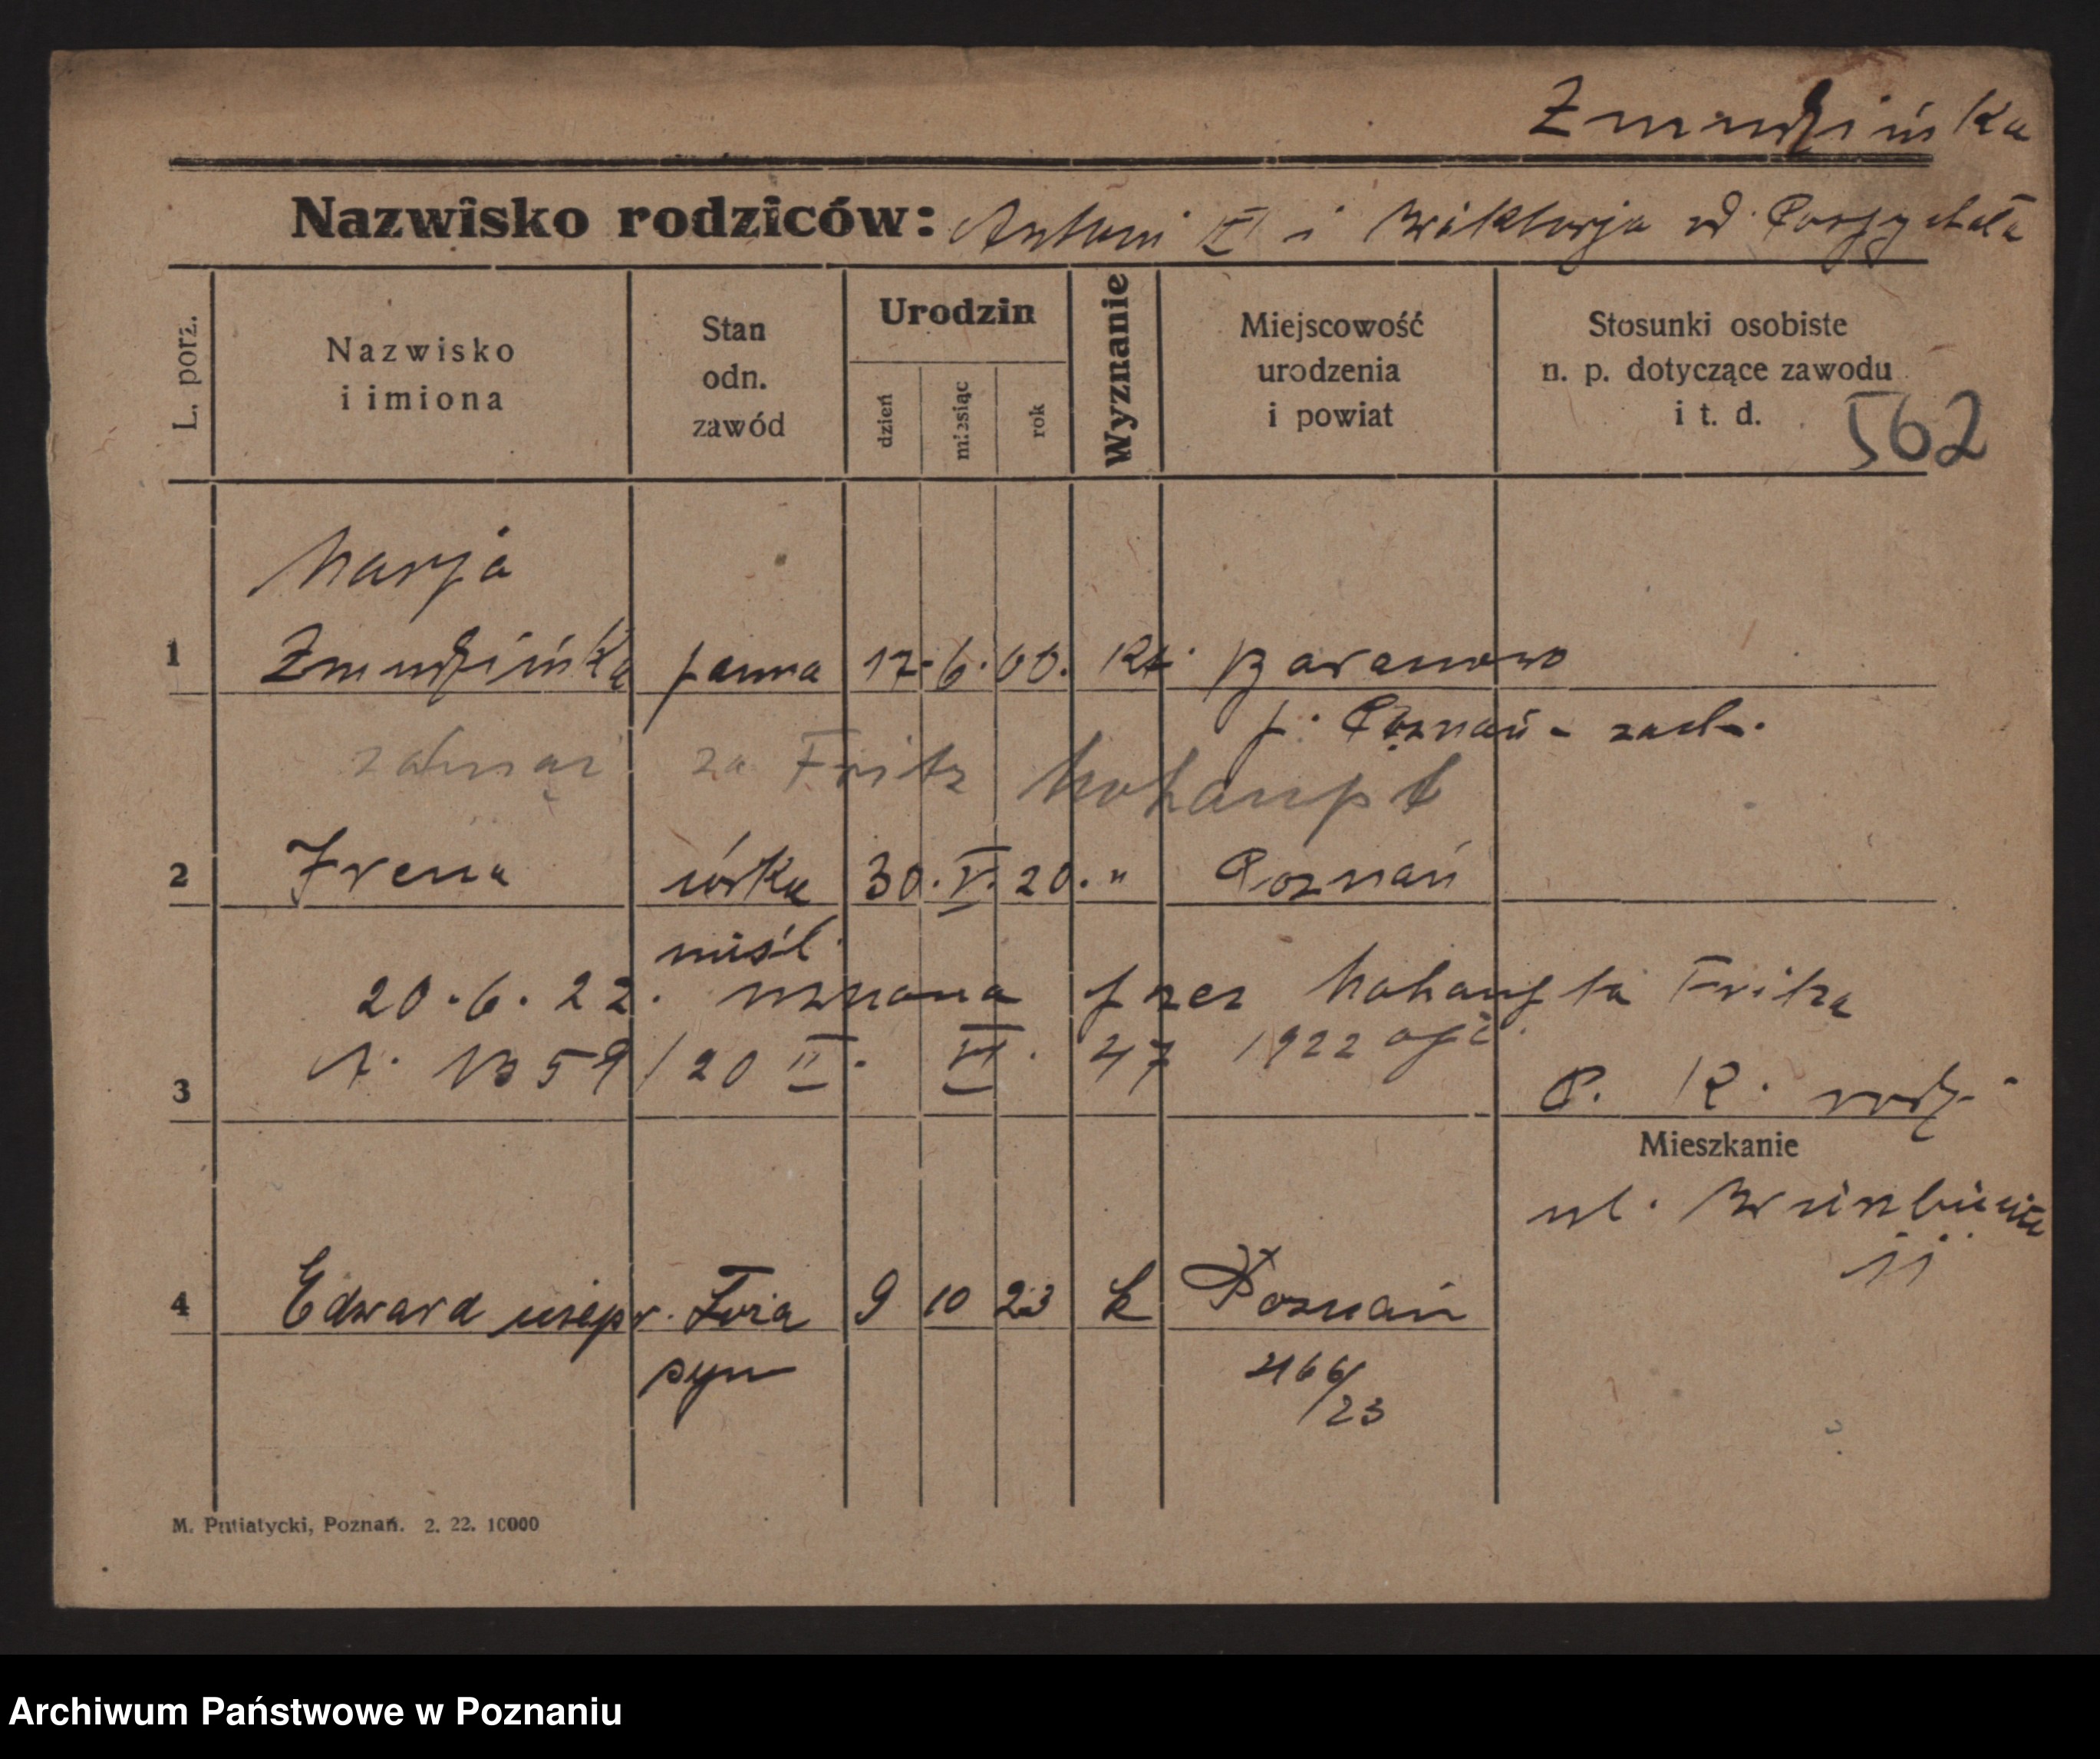 Zmudzińska
Nazwisko rodziców: Antoni VI i Wiktorja od. Przychała
L. porz.
Nazwisko i imiona
Stan odn. zawód
Urodzin
dzień
miesiąc
rok
Wyznanie
Miejscowość urodzenia i powiat
Stosunki osobiste n. p. dotyczące zawodu i t. d.
562
Marja
1 Zmudzińska panna 17. 6. 00. Rk. Baranowo
p. Poznań - zach.
za Fritz Mohaupt
2 Irena córka 30. V. 20. " Poznań
20. 6. 22. uznana przez Mohaupta Fritza
59/20 II. VI. 47 1922
3 P. K.
Mieszkanie
ul.
11
4 Edward 9 10 23 k Poznań
syn 2166/23
M. Putiatycki, Poznań. 2. 22. 10000
Archiwum Państwowe w Poznaniu